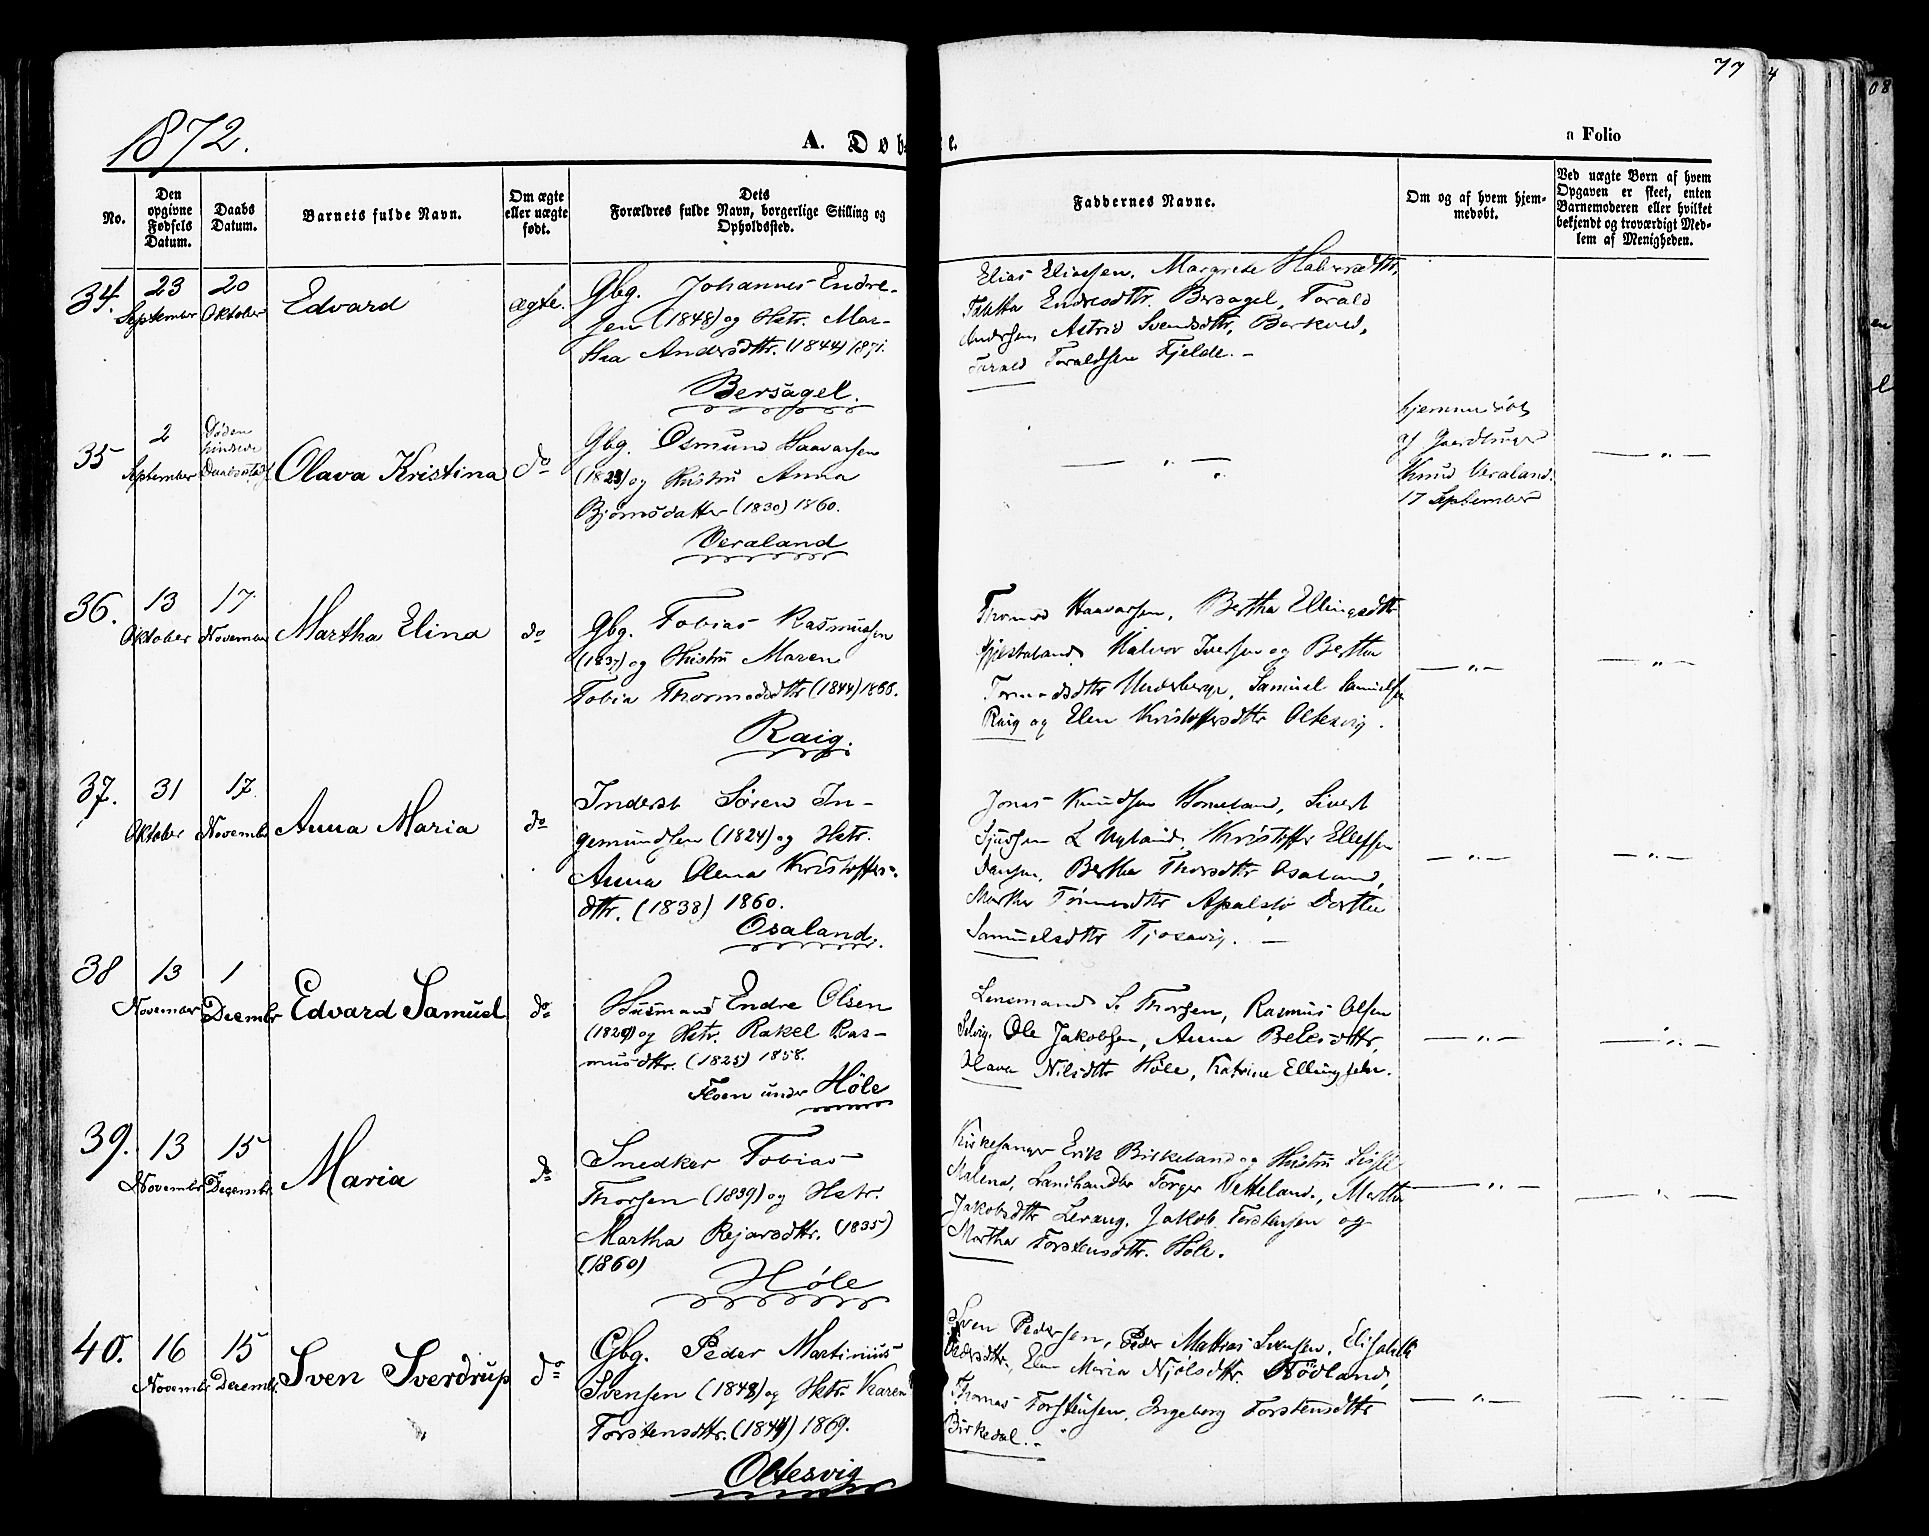 1872.
A. Døb
e.
n Folio
77
No.
Den opgivne Fødsels Datum.
Daabs Datum.
Barnets fulde Navn.
Om ægte eller uægte født.
Dets Forældres fulde Navn, borgerlige Stilling og Opholdssted.
Faddernes Navne.
Om og af hvem hjemmedøbt.
Ved uægte Børn af hvem Opgaven er skeet, enten Barnemoderen eller hvilket bekjendt og troværdigt Medlem af Menigheden.
34.
23 September
20 Oktober
Edvard
ægte.
Gbg. Johannes Endre-
sen (1848) og Hstr. Mar-
tha Andersdttr. (1844) 1871.
Bersagel.
Elias Eliassen, Margrete
Endresdttr. Bersagel, Torald
Andersen, Astrid Svendsdttr,
Toraldsen Fjelde.
35
2 September
Døden hindrede
Olava Kristina
do
Gbg. Osmund Haavarsen
og Hustru Anna
Bjørnsdatter (1830) 1860.
Veraland
hjemmedøbt
af Gaardbruger
Knud Veraland.
17 September
36.
13 Oktober
17 November
Martha Elina
do
Gbg. Tobias Rasmussen
(1837) og Hustru Maren
Tobia Thormodsdttr (1844) 1866.
Raig.
Haavarsen, Bertha Ellingsdttr
Halvor Iversen og Bertha
Samuel Samuelsen
Raig og Elen Kristoffersdttr Oltesvig.
37.
31 Oktober
17 Novembr
Anna Maria
do
Inderst Søren In-
gemundsen (1824) og Hstr.
Anna Olena Kristoffers-
dttr. (1838) 1860.
Osaland.
Jonas Knudsen Homeland, Sivert
Kristoffer Ellefsen
Bertha Thorsdttr Osaland,
Martha
Samuelsdttr Tjosavig.
38
13 November
1 Decembr
Edvard Samuel
do
Husmand Endre Olsen
(1829) og Hstr. Rakel Ras-
musdttr. (1825) 1858.
Floen under Høle
Lensmand S. Thorsen, Rasmus Olsen
Selvig. Ole Jakobsen, Anna
Olava Nilsdttr Høle, Katrine
39.
13 Novembr
15 Decembr.
Maria
do
Snedker Tobias
Thorsen (1839) og Hstr.
Martha Rejarsdttr. (1835)
(1860)
Høle
Kirkesanger Erik Birkeland og Hustru
Malena, Landhandler Torger Vetteland, Martha
Jakobsdttr Lerang, Jakob Torstensen og
Martha Torstensdttr. Høle.
40.
16 Novembr
15 Decembr.
Sven Sverdrup
do
Gbg. Peder Martinius
Svensen (1848) og Hstr Karen
Torstensdttr. (1844) 1869.
Oltesvig
Sven Pedersen, Peder Mathias Svensen, Elisabeth
Pedersdttr., Elen Maria Njølsdttr. Nødland,
Thomas Torstensen, Ingeborg Torstensdttr
Birkedal.